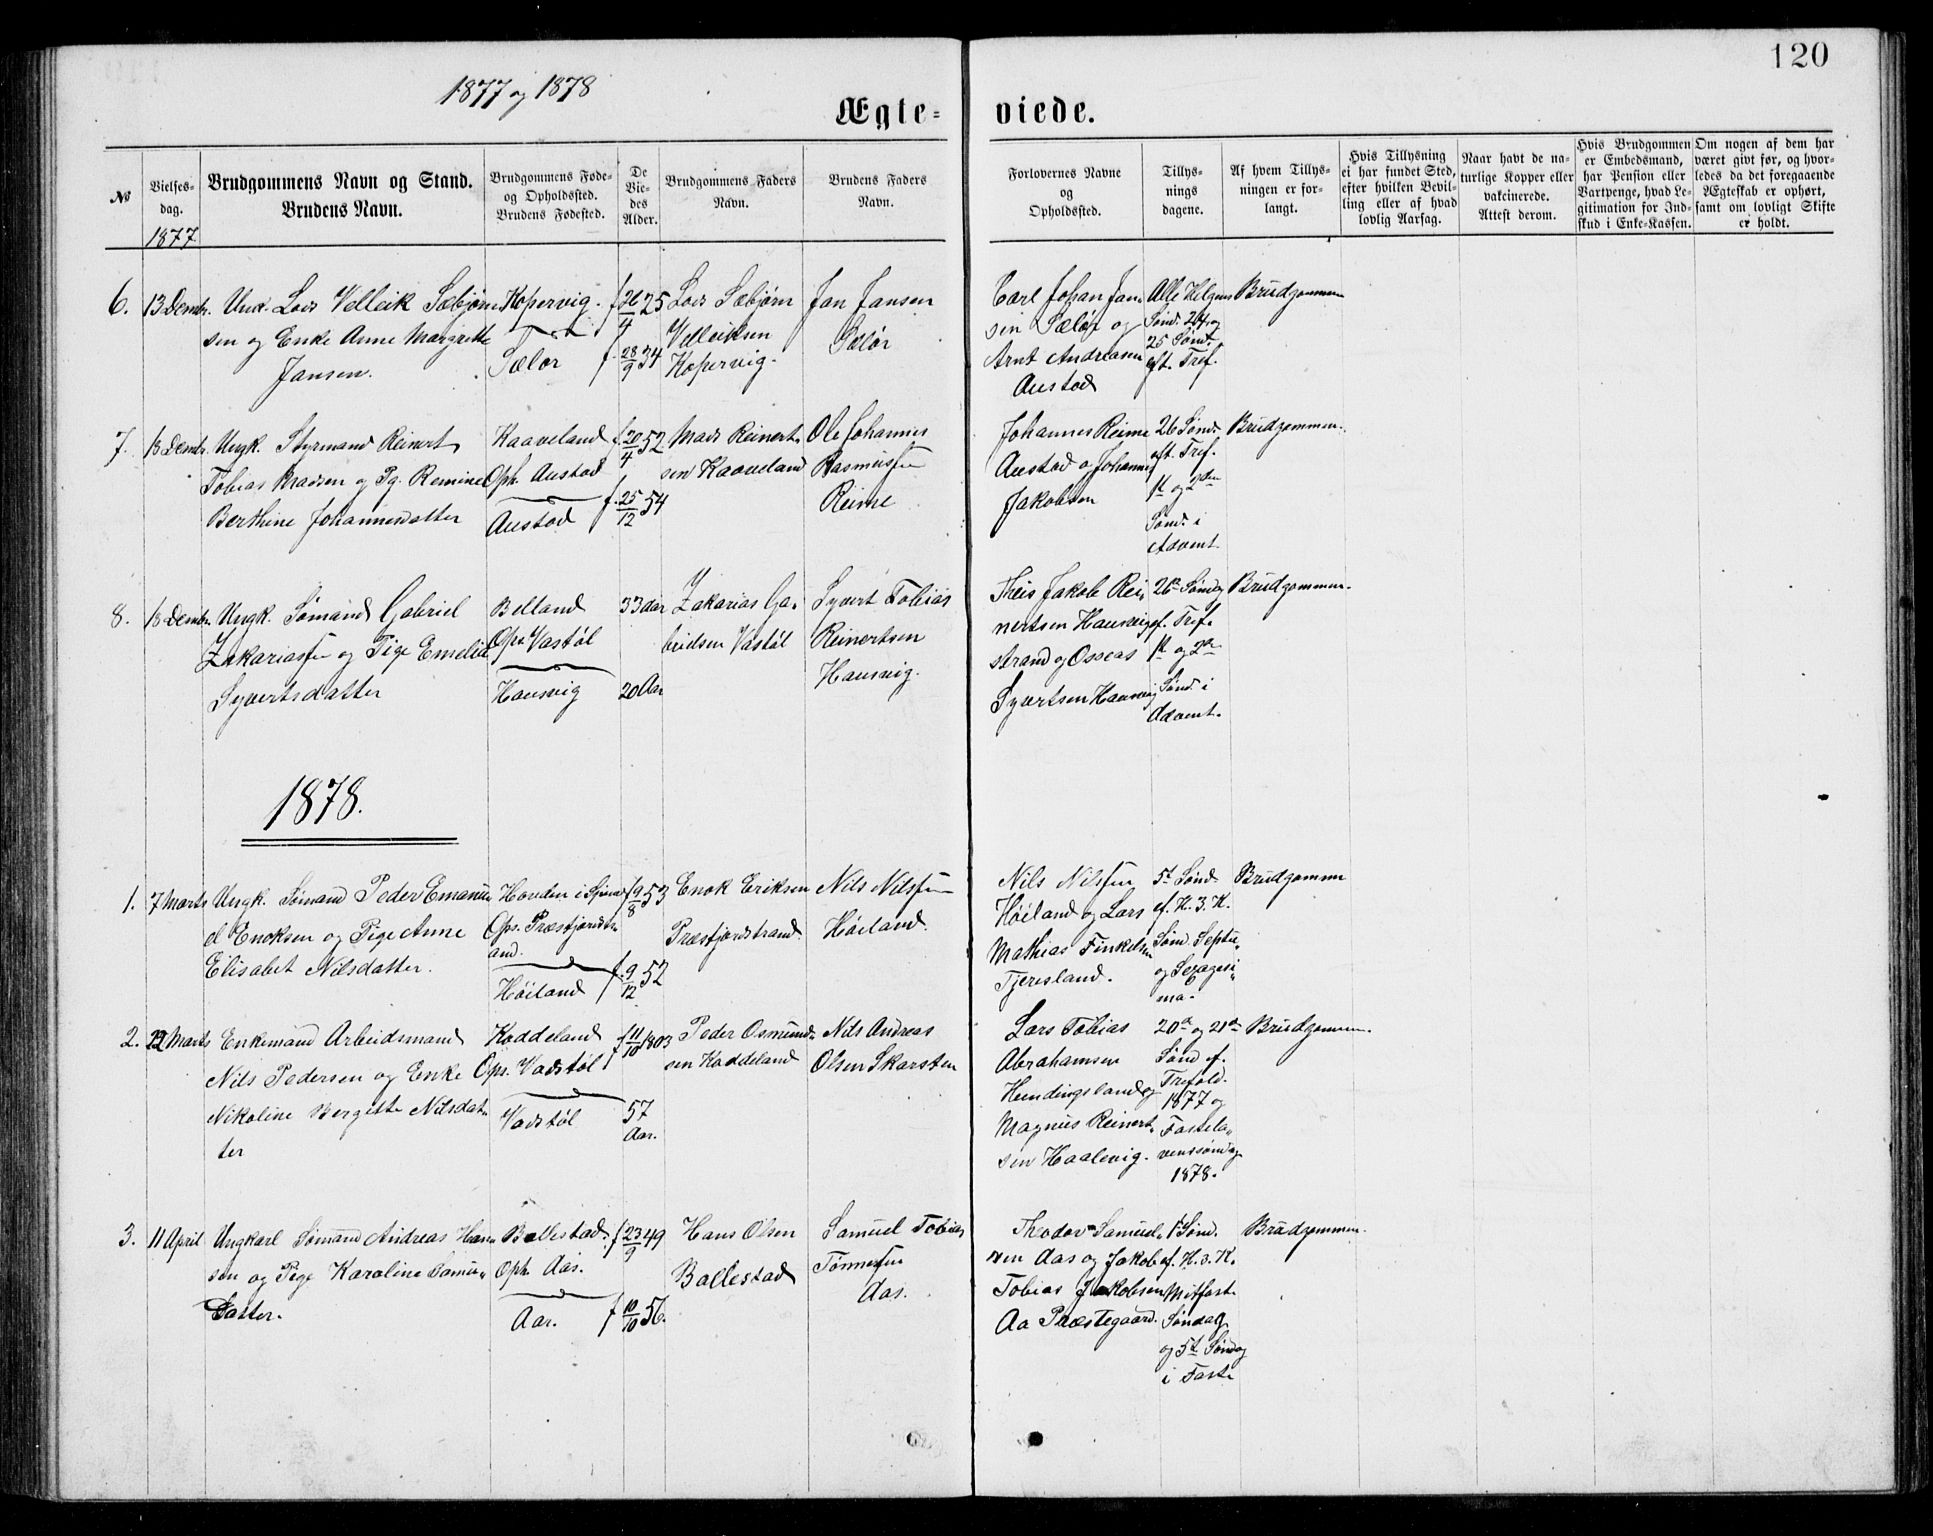 120
1877 og 1878
Ægteviede.
№
Vielsesdag.
1877
Brudgommens Navn og Stand.
Brudens Navn.
Brudgommens Føde-
og Opholdssted.
Brudens Fødested.
De
Vie-
des
Alder.
Brudgommens Faders
Navn.
Brudens Faders
Navn.
Forlovernes Navne
og
Opholdssted.
Tillys-
nings
dagene.
Af hvem Tillys-
ningen er for-
langt.
Hvis Tillysning
ei har fundet Sted,
efter hvilken Bevil-
ling eller af hvad
lovlig Aarsag.
Naar havt de na-
turlige Kopper eller
vakcinerede.
Attest derom.
Hvis Brudgommen
er Embedsmand,
har Pension eller
Vartpenge, hvad Le-
gitimation for Ind-
skud i Enke-Kassen.
Om nogen af dem har
været givt før, og hvor-
ledes da det foregaaende
Ægteskab er ophørt,
samt om lovligt Skifte
er holdt.
6.
13 Dembr.
Unk. Lars Velleik Sæbjørn
sen og Enke Anne Margrethe
Jansen.
Kopervig.
Sælør
f 26/4 25
f. 28/9 34
Lars Sæbjørn
Velleiksen
Kopervig.
Jan Jansen
Sælør
Carl Johan Jan
sen Sælør og
Arnt Andreasen
Austad
Alle Helgens
Sønd. 24, og
25 Sønd.
eft. Tref.
Brudgommen
7.
13 Dembr.
Ungk. Styrmand Reinert
Tobias Madsen og Pg. Remine
Berthine Johannesdatter
Kaaveland
Oph. Austad
Austad
f. 20/4 52
f. 25/12 54
Mads Reinert-
sen Kaaveland
Ole Johannes
Rasmussen
Reime
Johannes Reime
Austad og Johannes
Jakobsen
26 Sønd.
eft. Tref.
1st og 2den
Sønd. i
Advent.
Brudgommen.
8.
13 Dembr.
Ungk. Sømand Gabriel
Zakariassen og Pige Emelie
Syvertsdatter
Belland
Op. Vastøl
Hausvig
33 aar
20 Aar
Zakarias Ga-
brielsen Vastøl
Syvert Tobias
Reinertsen
Hausvig.
Theis Jakob Rei-
nertsen Hausvig
strand og Osseas
Syvertsen Hausvig
26de Søndag
ef. Tref.
1st og 2de
Sønd. i
Advent.
Brudgommen.
1878.
1.
7 Marts
Ungk. Sømand Peder Emanu
el Enoksen og Pige Anne
Elisabet Nilsdatter.
Houden i Spind
Ops. Præstfjordstr
and.
Høiland
f 9/8 53
f. 9/12 52
Enok Eriksen
Præstfjordstrand.
Nils Nilssen
Høiland.
Nils Nilssen
Høiland og Lars
Mathias Finkelsen
Tjeresland.
5t Sønd.
ef. H. 3. K.
Sønd. Septu-
og Sexagesi-
ma.
Brudgommen
2.
22 Marts
Enkemand Arbeidsmand
Nils Pedersen og Enke
Nikoline Bergitte Nilsdat-
ter
Koddeland
Ops. Vadstøl
Vadstøl
f 11/10 1803
57
Aar.
Peder Osmund-
sen Koddeland
Nils Andreas
Olsen Skarstein
Lars Tobias
Abrahamsen
Hundingsland og
Magnus Reinert-
sen Haalevig.
20de og 21de
Sønd ef.
Trefold.
1877 og
Fastela-
venssøndag
1878.
Brudgommen.
3.
11 April
Ungkarl Sømand Andreas Han-
sen og Pige Karoline Samu-
datter.
Ballestad.
Oph. Aas.
Aas.
f 23/9 49
f 10/10 56.
Hans Olsen
Ballestad
Samuel Tobias
Tønnessen
Aas.
Theodor Samuel-
sen Aas og Jakob
Tobias Jakobsen
Aa Præstegaard.
1st Sønd.
ef. H. 3. K.
Mitfaste
Søndag
og 5t Søndag
i Faste
Brudgommen.